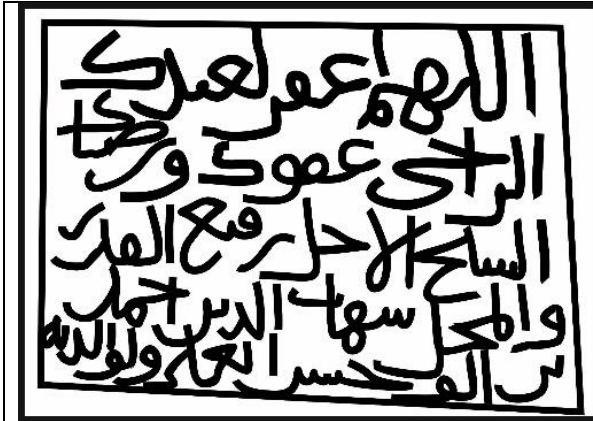 اللهم اغفر لعبدك
الراجى عفوك ورضاك
الشيخ الاجل رفيع القدر
والمحل شهاب الدين احمد
بن حسن ولوالديه